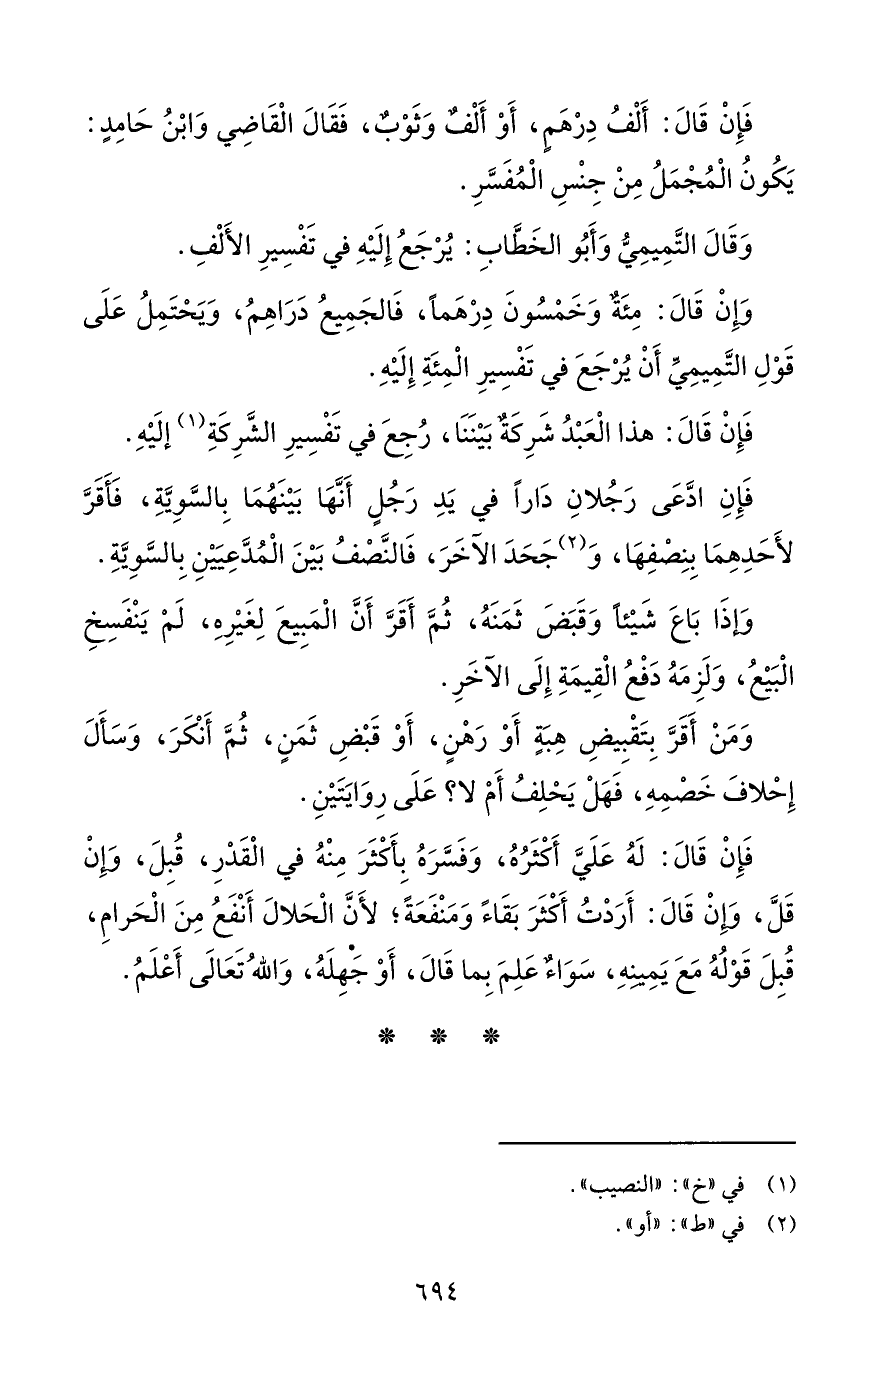 فَإِنْ قَالَ: أَلْفُ دِرْهَمٍ، أَوْ أَلْفٌ وَثَوْبٌ، فَقَالَ الْقَاضِي وَابْنُ حَامِدٍ:
يَكُونُ الْمُجْمَلُ مِنْ جِنْسِ الْمُفَسَّرِ.
وَقَالَ التَّمِيمِيُّ وَأَبُو الخَطَّابِ: يُرْجَعُ إِلَيْهِ في تَفْسِيرِ الأَلْفِ.
وَإِنْ قَالَ: مِئَةٌ وَخَمْسُونَ دِرْهَماً، فَالجَمِيعُ دَرَاهِمُ، وَيَحْتَمِلُ عَلَى
قَوْلِ التَّمِيمِيِّ أَنْ يُرْجَعَ في تَفْسِيرِ الْمِئَةِ إِلَيْهِ.
فَإِنْ قَالَ: هذا الْعَبْدُ شَرِكَةٌ بَيْنَنَا، رُجِعَ في تَفْسِيرِ الشَّرِكَةِ(١) إِلَيْهِ.
فَإِنِ ادَّعَى رَجُلانِ دَاراً في يَدِ رَجُلٍ أَنَّهَا بَيْنَهُمَا بِالسَّوِيَّةِ، فَأَقَرَّ
لأَحَدِهِمَا بِنِصْفِهَا، وَ(٢)جَحَدَ الآخَرَ، فَالنِّصْفُ بَيْنَ الْمُدَّعِيَيْنِ بِالسَّوِيَّةِ.
وَإِذَا بَاعَ شَيْئاً وَقَبَضَ ثَمَنَهُ، ثُمَّ أَقَرَّ أَنَّ الْمَبِيعَ لِغَيْرِهِ، لَمْ يَنْفَسِخِ
الْبَيْعُ، وَلَزِمَهُ دَفْعُ الْقِيمَةِ إِلَى الآخَرِ.
وَمَنْ أَقَرَّ بِتَقْبِيضِ هِبَةٍ أَوْ رَهْنٍ، أَوْ قَبْضِ ثَمَنٍ، ثُمَّ أَنْكَرَ، وَسَأَلَ
إِحْلافَ خَصْمِهِ، فَهَلْ يَحْلِفُ أَمْ لا؟ عَلَى رِوَايَتَيْنِ.
فَإِنْ قَالَ: لَهُ عَلَيَّ أَكْثَرُهُ، وَفَسَّرَهُ بِأَكْثَرَ مِنْهُ في الْقَدْرِ، قُبِلَ، وَإِنْ
قَلَّ، وَإِنْ قَالَ: أَرَدْتُ أَكْثَرَ بَقَاءً وَمَنْفَعَةً؛ لأَنَّ الْحَلالَ أَنْفَعُ مِنَ الْحَرامِ،
قُبِلَ قَوْلُهُ مَعَ يَمِينِهِ، سَوَاءٌ عَلِمَ بِما قَالَ، أَوْ جَهِلَهُ، وَاللهُ تَعَالَى أَعْلَمُ.
* * *
(١) في «خ»: «النصيب».
(٢) في «ط»: «أو».
٦٩٤